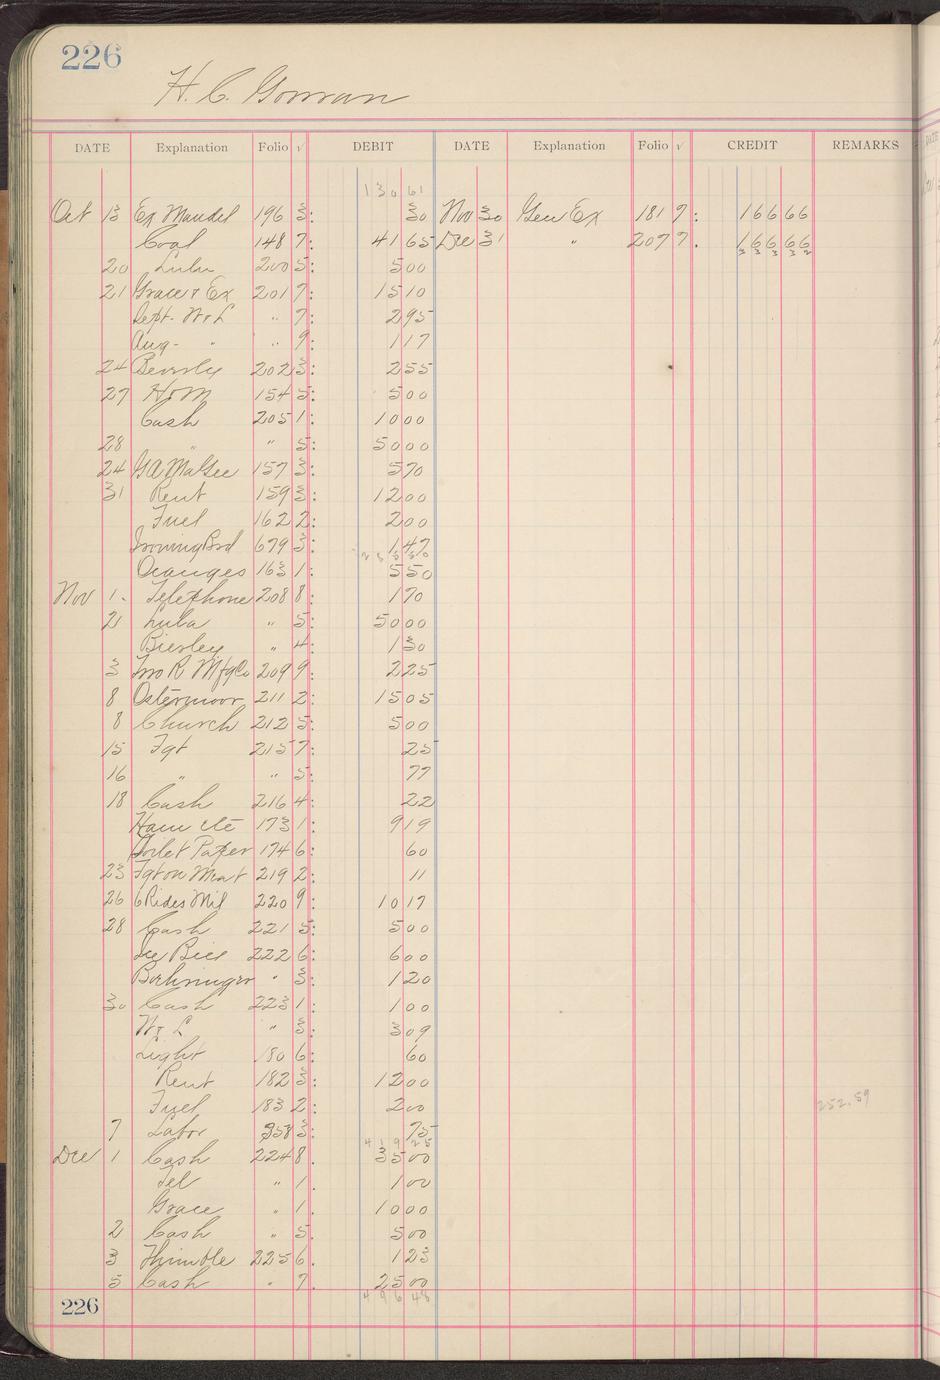 226
H. C. Gorman
DATE Explanation Folio √ DEBIT DATE Explanation Folio √ CREDIT REMARKS
130 61
Oct 13 Ex Mandel 196 3: 30 Nov 30 Gen Ex 181 7: 166 66
Coal 148 7: 41 65 Dec 31 " 207 7. 166 66
333 32
20 Lulu 200 5: 5 00
21 Grace & Ex 201 7: 15 10
Sept. W & L " 7: 2 95
Aug - " " 9: 1 17
24 Beverly 202 3: 2 55
27 154 5: 5 00
Cash 205 1: 10 00
28 " " 5: 50 00
24 G A MaGee 157 3: 5 70
31 Rent 159 3: 12 00
Fuel 162 2: 2 00
Ironing Brd 679 3: 1 47
Oranges 163 1: 5 50
Nov 1. Telephone 208 8: 1 70
21 Lula " 5: 50 00
" 4: 1 30
3 Jno R Mfg Co 209 9: 2 25
8 Ostermoor 211 2: 15 05
8 Church 212 5: 5 00
15 Fgt 215 7: 25
16 " " 5: 77
18 Cash 216 4: 22
Ham etc 173 1: 9 19
Toilet Paper 174 6: 60
23 Fgt on Meat 219 2: 11
26 6 Rides Mil 220 9: 10 17
28 Cash 221 5: 5 00
Ice Bill 222 6: 6 00
Bohringer " 3: 1 20
30 Cash 223 1: 1 00
W & L " 3: 3 09
Light 180 6: 60
Rent 182 3: 12 00
Fuel 183 2: 2 00 252.59
7 Labor 358 3: 75
419 25
Dec 1 Cash 224 8. 35 00
Tel " 1. 1 00
Grace " 1. 10 00
2 Cash " 5. 5 00
3 Thimble 225 6. 1 23
5 Cash " 7. 25 00
496 48
226